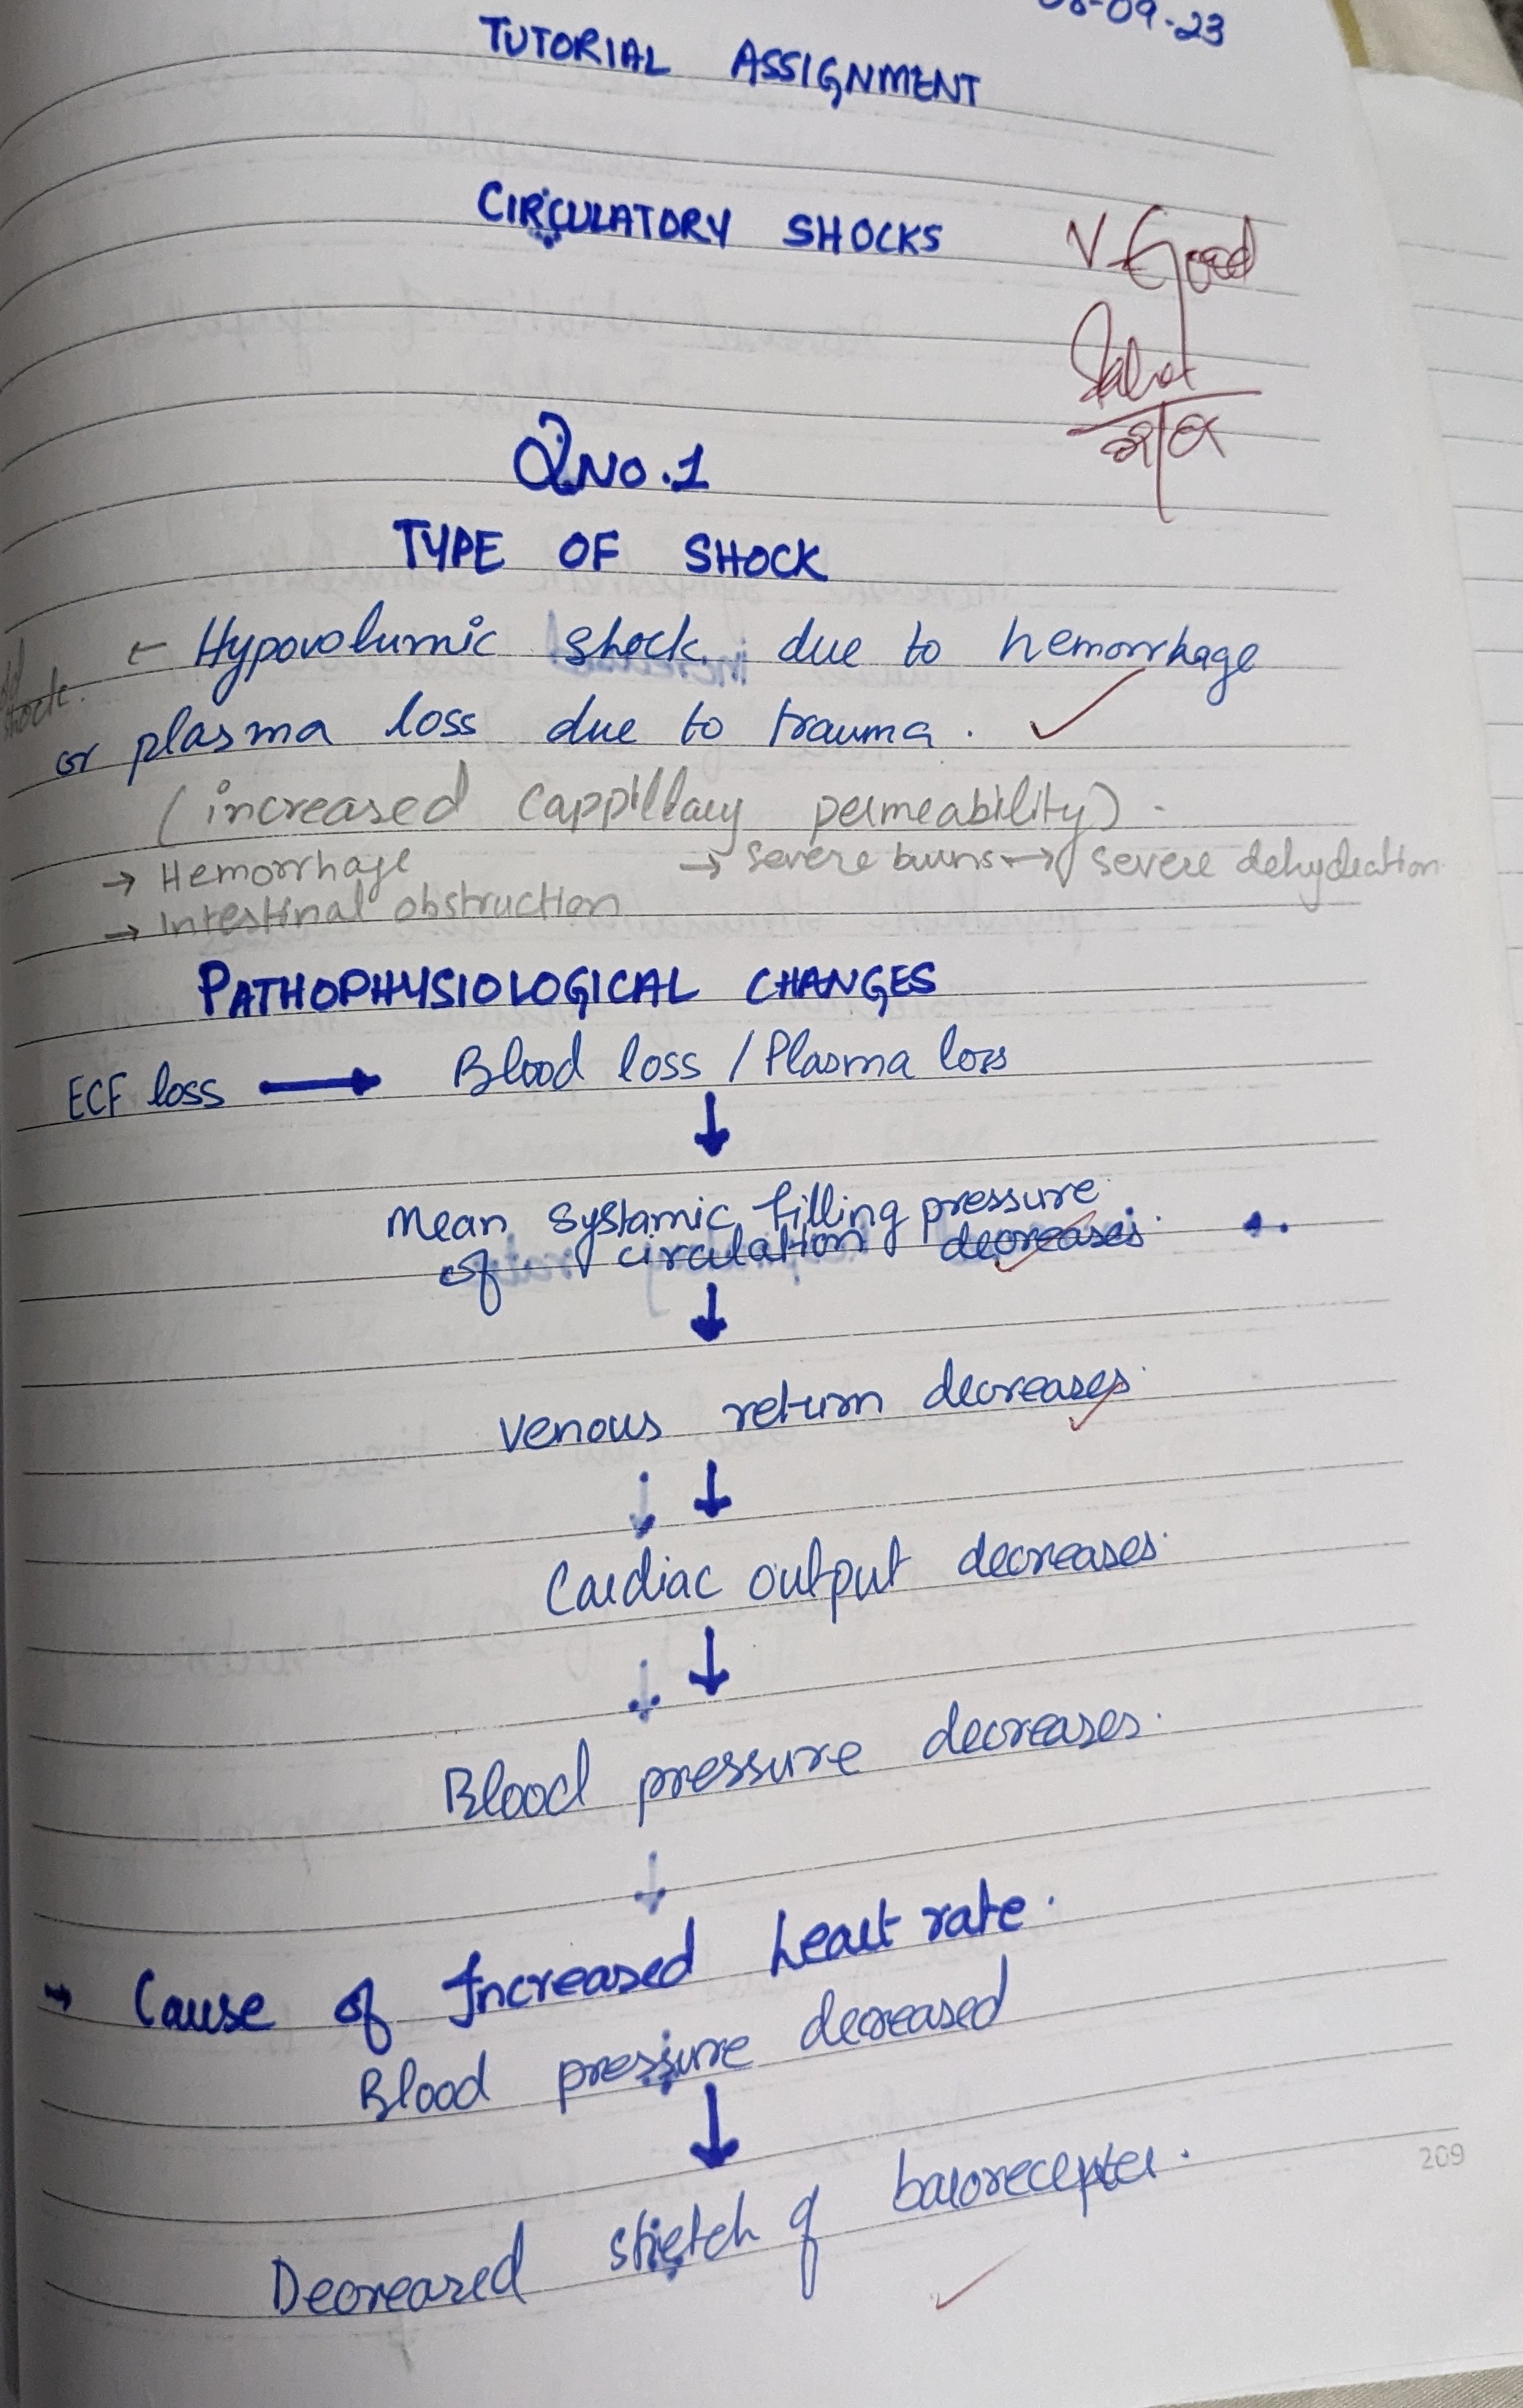 -09-23
TUTORIAL ASSIGNMENT
CIRCULATORY SHOCKS
V. Good
QNO.1
TYPE OF SHOCK
Hypovolumic shock due to hemorrhage
shock.
or plasma loss due to trauma.
(increased Cappillary permeability).
→ Hemorrhage → Severe burns → severe dehydration
→ Intestinal obstruction
PATHOPHYSIOLOGICAL CHANGES
ECF loss → Blood loss / Plasma loss
↓
Mean systamic filling pressure
of circulation decreases.
↓
Venous return decreases.
↓
Cardiac output decreases.
↓
Blood pressure decreases.
→ Cause of Increased heart rate.
Blood pressure decreased
↓
Decreased stretch of baroreceptor.
209